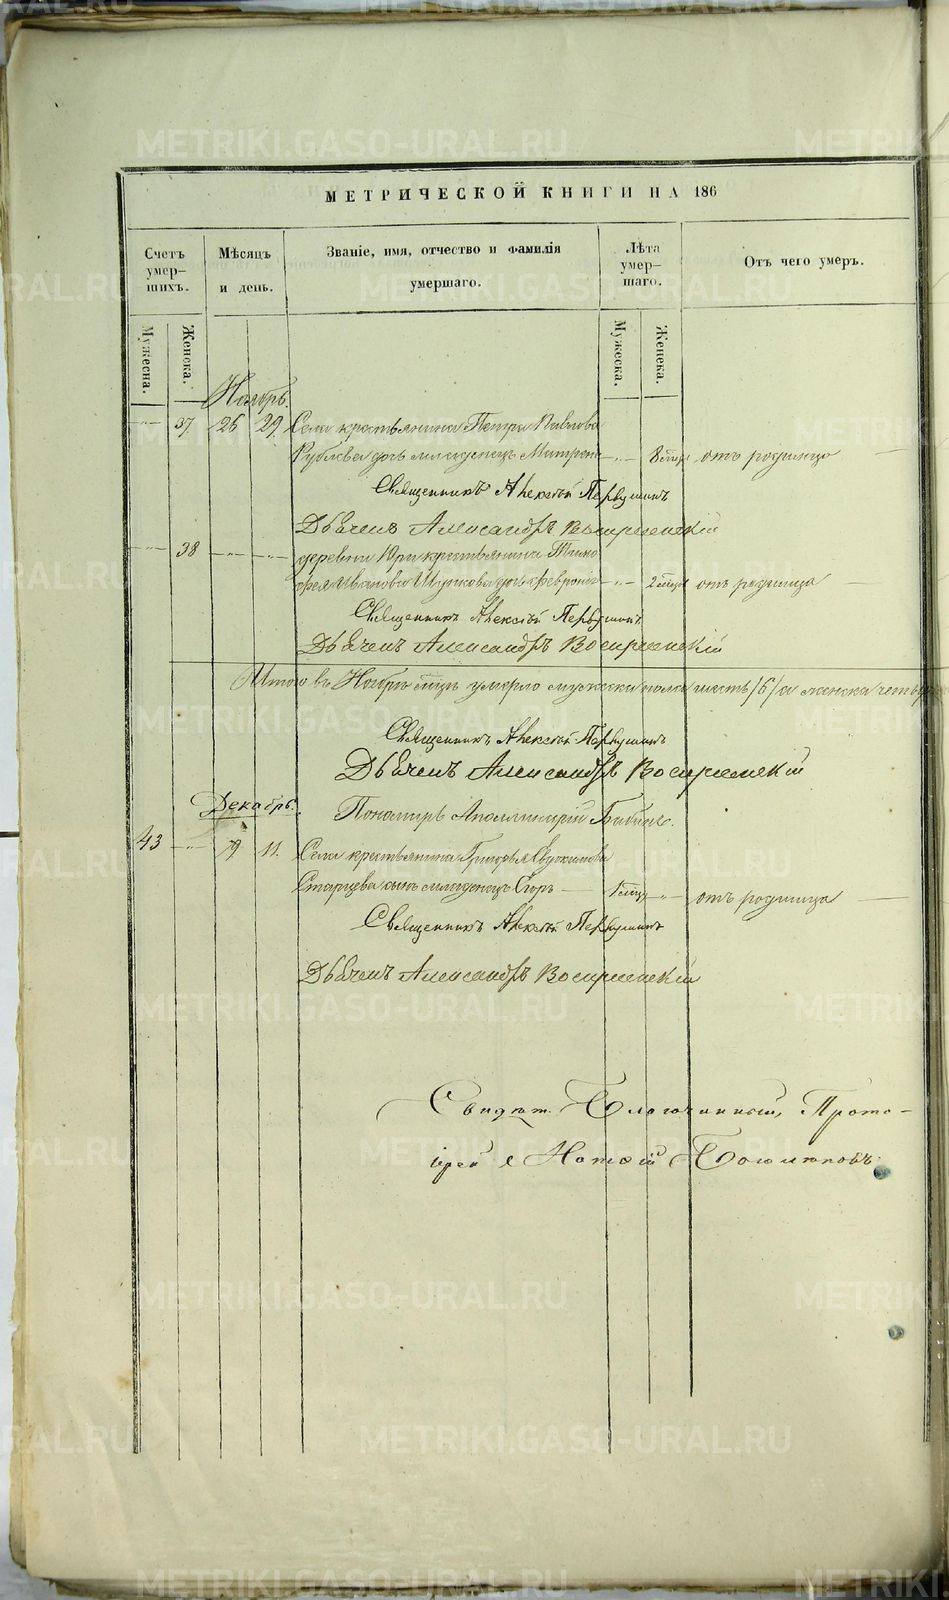 МЕТРИЧЕСКОЙ КНИГИ НА 186
Счетъ умер-шихъ.
Мѣсяцъ и день.
Званіе, имя, отчество и фамилія умершаго.
Лѣта умер-шаго.
Отъ чего умеръ.
Мужеска.
Женска.
Мужеска.
Женска.
Ноябрь.
37 26 29 Села крестьянина Петра Павлова
дочь младенецъ Матрена 8 мцъ отъ родимца
Священникъ Алексѣй Первушинъ
Дьячекъ Александръ Воскресенскій
38 деревни Юри крестьянина Тимо
фея Иванова дочь Февронія 2 мцъ отъ родимца
Священникъ Алексѣй Первушинъ
Дьячекъ Александръ Воскресенскій
Итого въ Ноябрѣ мцѣ умерло мужеска пола шесть /6/ а женска четыре
Священникъ Алексѣй Первушинъ
Дьячекъ Александръ Воскресенскій
Декабрь.
Пономарь Аполлинарій Бибинъ.
43 9 11. Села крестьянина Григорья Евдокимова
Старцева сынъ младенецъ Егоръ 1 мцъ отъ родимца
Священникъ Алексѣй Первушинъ
Дьячекъ Александръ Воскресенскій
Свидѣт. Благочинный, Прото-
іерей
METRIKI.GASO-URAL.RU